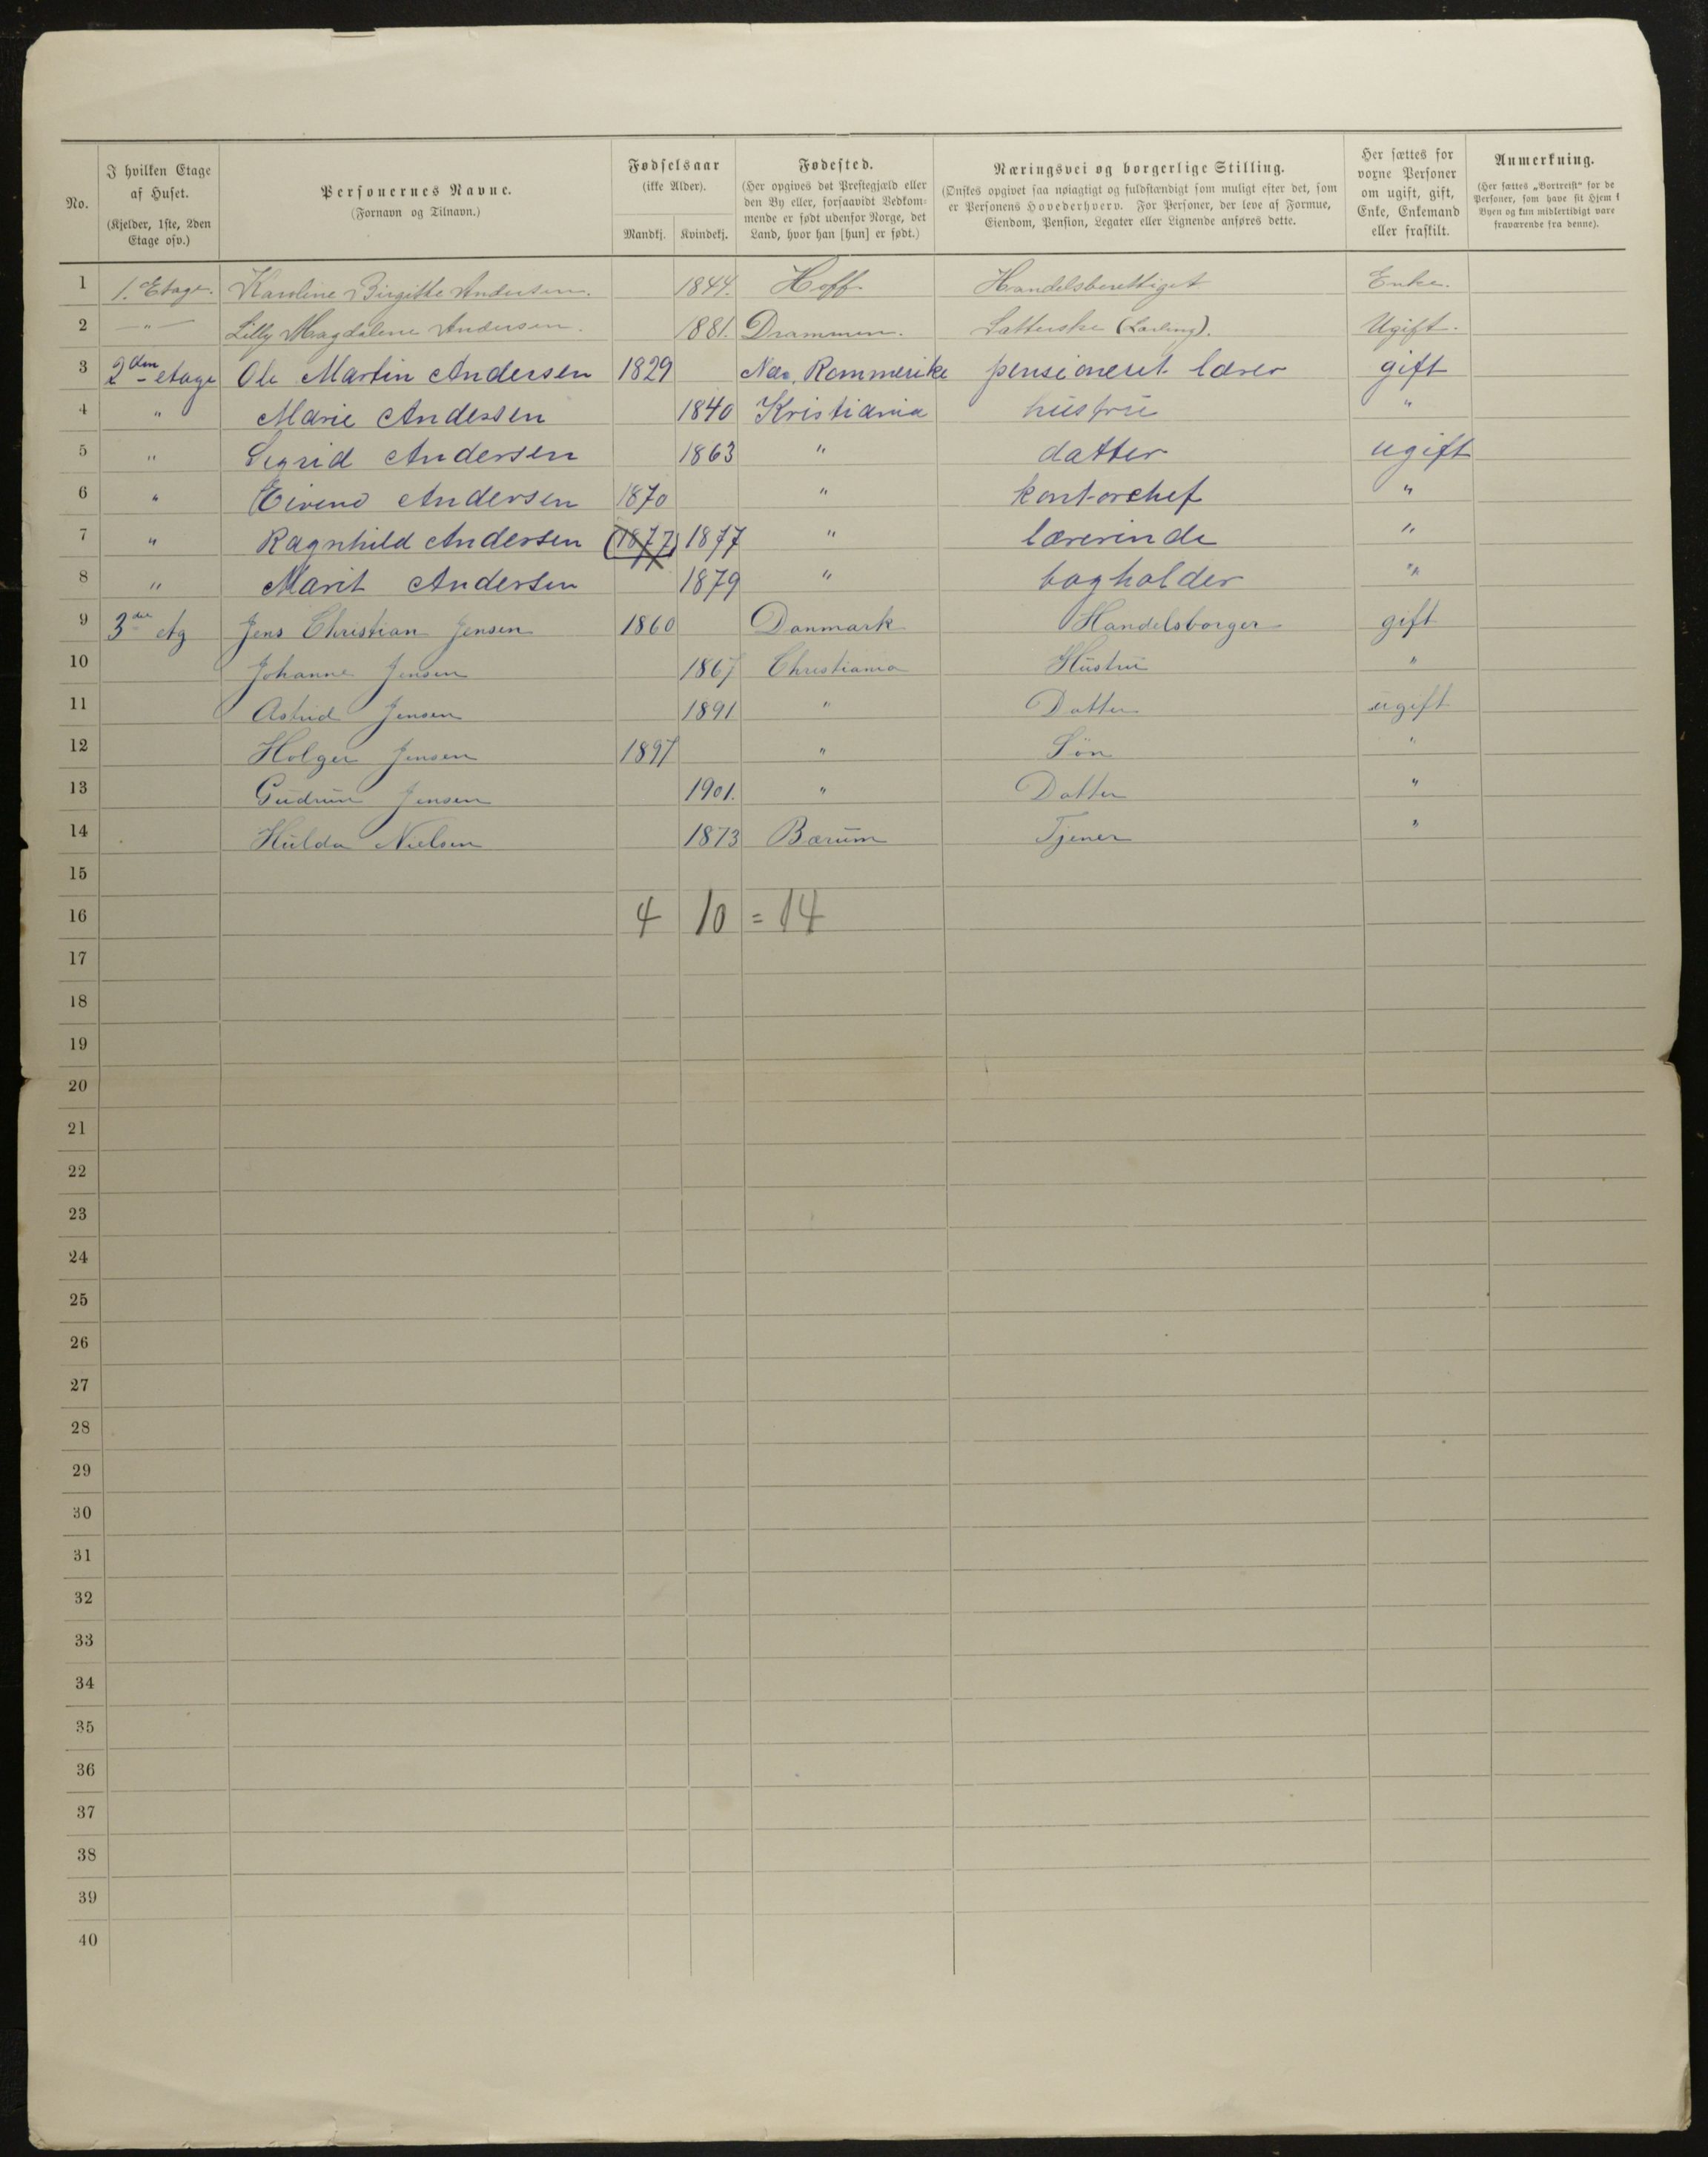 No.
I hvilken Etage af Huset. (Kjelder, 1ste, 2den Etage osv.)
Personernes Navne. (Fornavn og Tilnavn.)
Fødselsaar (ikke Alder). Mandkj. Kvindekj.
Fødested. (Her opgives det Prestegjæld eller den By eller, forsaavidt Vedkommende er født udenfor Norge, det Land, hvor han [hun] er født.)
Næringsvei og borgerlige Stilling. (Ønskes opgivet saa nøiagtigt og fuldstændigt som muligt efter det, som er Personens Hovederhverv. For Personer, der leve af Formue, Eiendom, Pension, Legater eller Lignende anføres dette.
Her sættes for voxne Personer om ugift, gift, Enke, Enkemand eller fraskilt.
Anmerkning. (Her sættes „Bortreist“ for de Personer, som have sit Hjem i Byen og kun midlertidigt være fraværende fra denne).
1 1. Etage. Karoline Birgitte Andersen. 1844. Hoff. Handelsberettiget Enke.
2 —"— Lilly Magdalene Andersen. 1881. Drammen. (Lærling). Ugift.
3 2den etage Ole Martin Andersen 1829 Nes, Rommerike pensioneret lærer gift
4 " Marie Andersen 1840 Kristiania hustru "
5 " Sigrid Andersen 1863 " datter ugift
6 " Eivind Andersen 1870 " kontorchef "
7 " Ragnhild Andersen (1877) 1877 " lærerinde "
8 " Marit Andersen 1879 " bogholder "
9 3die Etg Jens Christian Jensen 1860 Danmark Handelsborger gift
10 Johanne Jensen 1867 Christiania Hustru "
11 Astrid Jensen 1891 " Datter ugift
12 Holger Jensen 1897 " Søn "
13 Gudrun Jensen 1901. " Datter "
14 Hulda Nielsen 1873 Bærum Tjener "
15
16 4 10 = 14
17
18
19
20
21
22
23
24
25
26
27
28
29
30
31
32
33
34
35
36
37
38
39
40